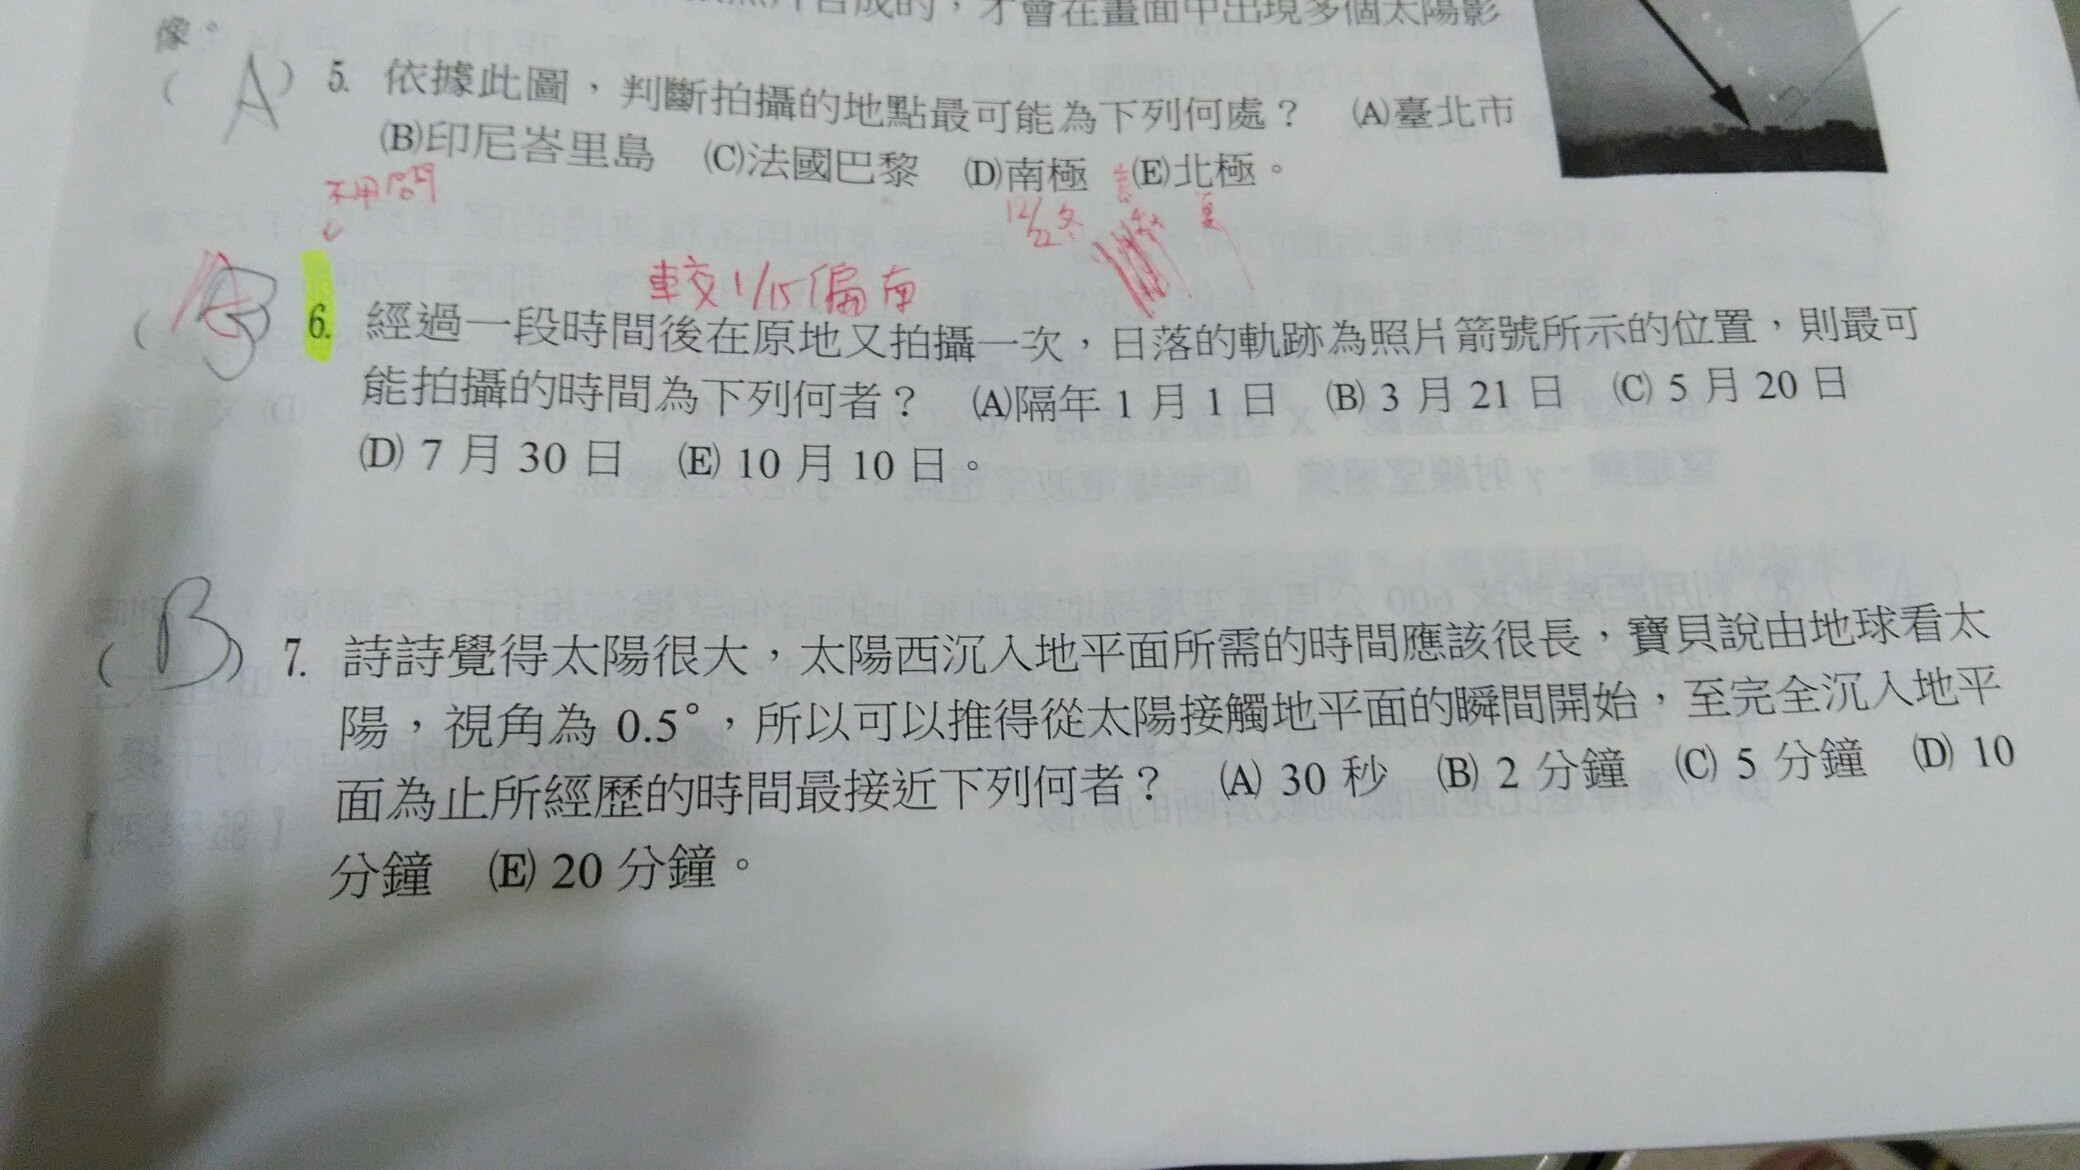 照片合成的,才會在畫面中出現多個太陽影
像。
( A ) 5. 依據此圖,判斷拍攝的地點最可能為下列何處? (A)臺北市
(B)印尼峇里島 (C)法國巴黎 (D)南極 (E)北極。
不用問
12/22 冬 春 秋 夏
較1/15偏南
( A ) 6. 經過一段時間後在原地又拍攝一次,日落的軌跡為照片箭號所示的位置,則最可
能拍攝的時間為下列何者? (A)隔年 1 月 1 日 (B) 3 月 21 日 (C) 5 月 20 日
(D) 7 月 30 日 (E) 10 月 10 日。
( B ) 7. 詩詩覺得太陽很大,太陽西沉入地平面所需的時間應該很長,寶貝說由地球看太
陽,視角為 0.5°,所以可以推得從太陽接觸地平面的瞬間開始,至完全沉入地平
面為止所經歷的時間最接近下列何者? (A) 30 秒 (B) 2 分鐘 (C) 5 分鐘 (D) 10
分鐘 (E) 20 分鐘。